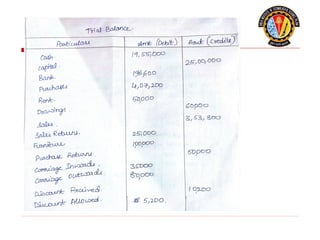 Trial Balance.
Particulars Amt (Debit) Amt (Credits)
Cash 19,55,000
Capital 25,00,000
Bank
Purchases 4,07,200
Rent 50,000
Drawings
Sales. 3,53,800
Sales Returns. 25,000
Furniture 100000
Purchase Returns 50000
Carriage Inwards. 35000
Carriage Outwards 80,000
Discount Received. 10200
Discount Allowed. 5,200.